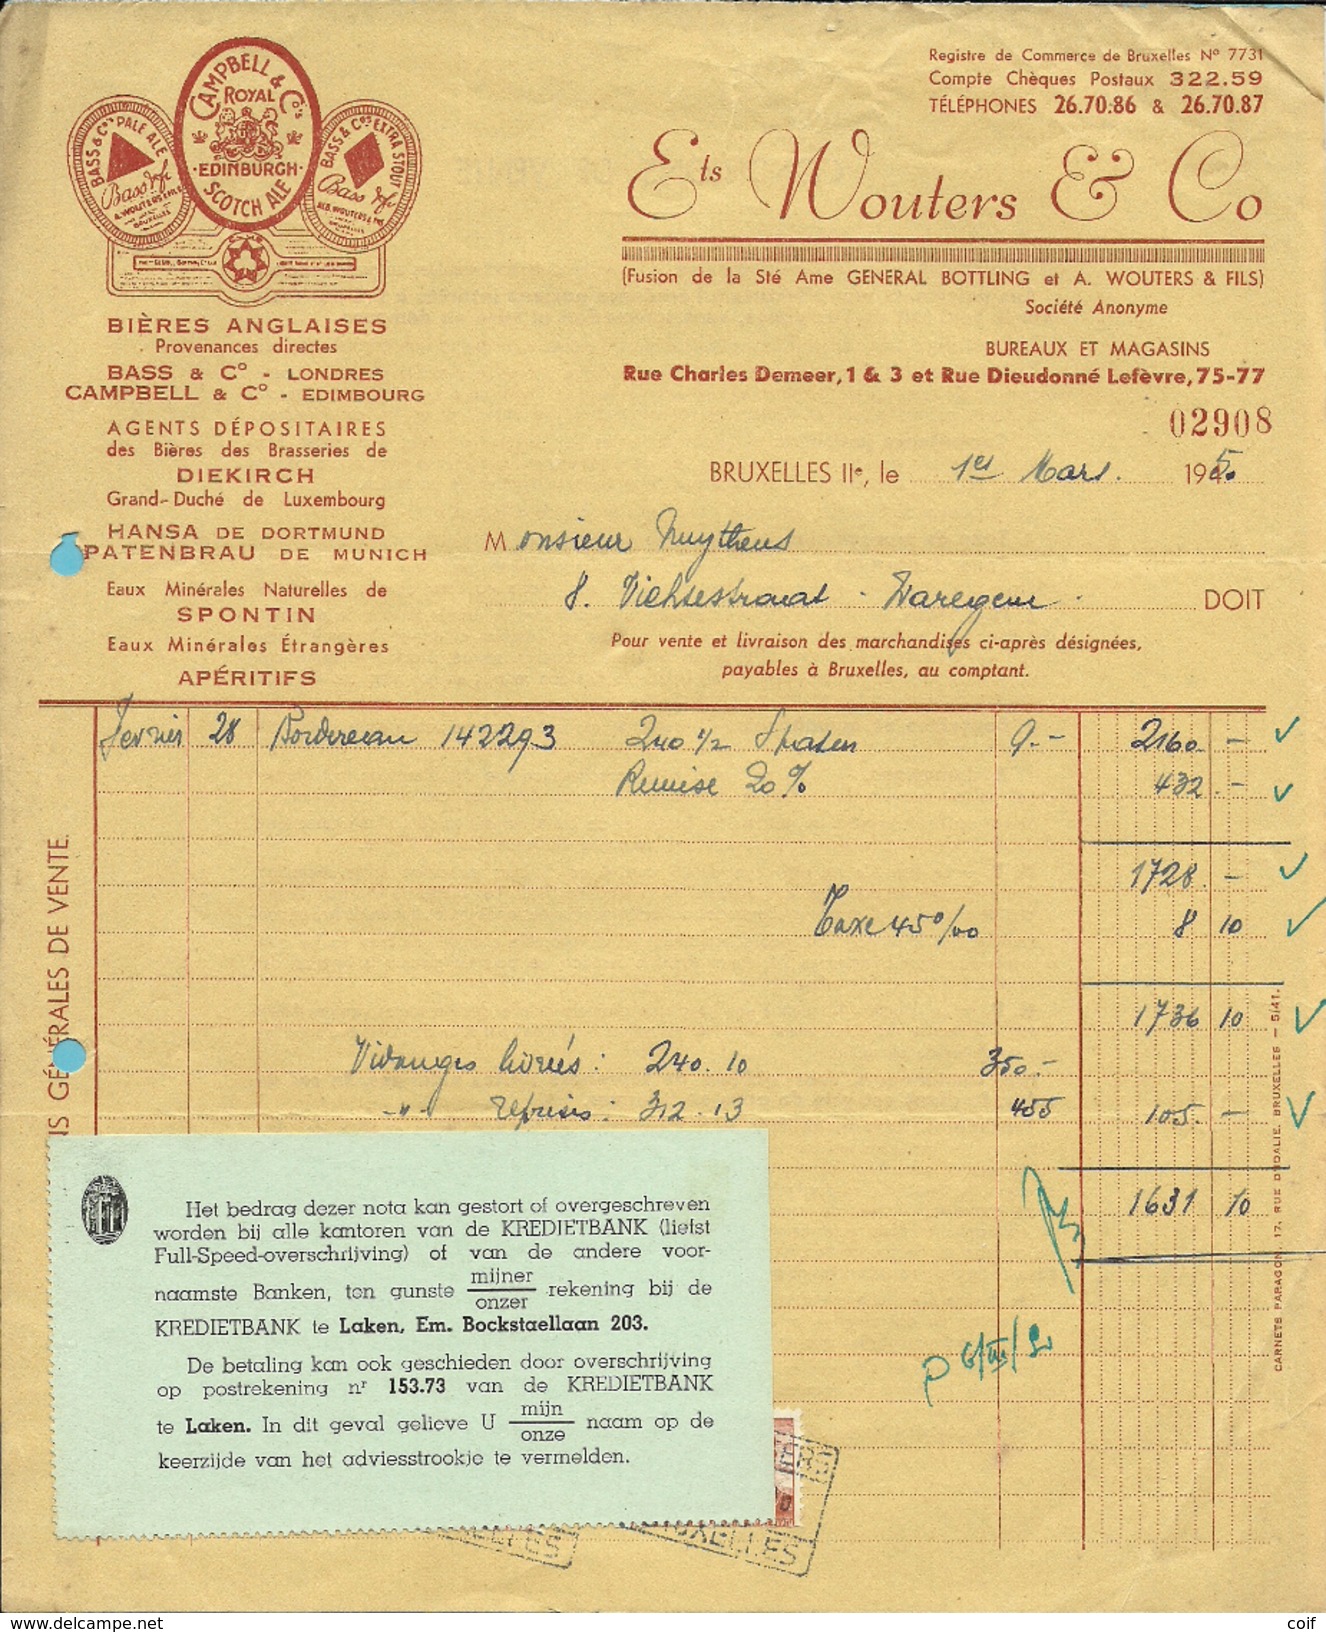 Registre de Commerce de Bruxelles Nº 7731
Compte Chèques Postaux 322.59
TÉLÉPHONES 26.70.86 & 26.70.87
CAMPBELL & Co's
ROYAL
EDINBURGH
SCOTCH ALE
BASS & Co's PALE ALE
A. WOUTERS & FILS
BRUXELLES
BASS & Co's EXTRA STOUT
Ets Wouters & Co
(Fusion de la Sté Ame GENERAL BOTTLING et A. WOUTERS & FILS)
Société Anonyme
BUREAUX ET MAGASINS
Rue Charles Demeer, 1 & 3 et Rue Dieudonné Lefèvre, 75-77
BIÈRES ANGLAISES
Provenances directes
BASS & Cº - LONDRES
CAMPBELL & Cº - EDIMBOURG
AGENTS DÉPOSITAIRES
des Bières des Brasseries de
DIEKIRCH
Grand-Duché de Luxembourg
HANSA DE DORTMUND
PATENBRAU DE MUNICH
Eaux Minérales Naturelles de
SPONTIN
Eaux Minérales Étrangères
APÉRITIFS
02908
BRUXELLES IIe, le 1er Mars. 1950
Monsieur Nuyttens
8. Vichtestraat - Waregem. DOIT
Pour vente et livraison des marchandises ci-après désignées,
payables à Bruxelles, au comptant.
Fevrier 28 Bordereau 142293 240 1/2 Spaten 9.- 2160 -
Remise 20% 432.-
1728.-
Taxe 45 0/00 8 10
1736 10
Vidanges livrées: 240.10 350.-
-"- reprises: 312.13 455 105.-
1631 10
NS GÉNÉRALES DE VENTE.
CARNETS PARAGON, 17, RUE D'IDALIE, BRUXELLES — 5/41.
Het bedrag dezer nota kan gestort of overgeschreven
worden bij alle kantoren van de KREDIETBANK (liefst
Full-Speed-overschrijving) of van de andere voor-
naamste Banken, ten gunste mijner/onzer rekening bij de
KREDIETBANK te Laken, Em. Bockstaellaan 203.
De betaling kan ook geschieden door overschrijving
op postrekening nr 153.73 van de KREDIETBANK
te Laken. In dit geval gelieve U mijn/onze naam op de
keerzijde van het adviesstrookje te vermelden.
p 6/III/50
coif